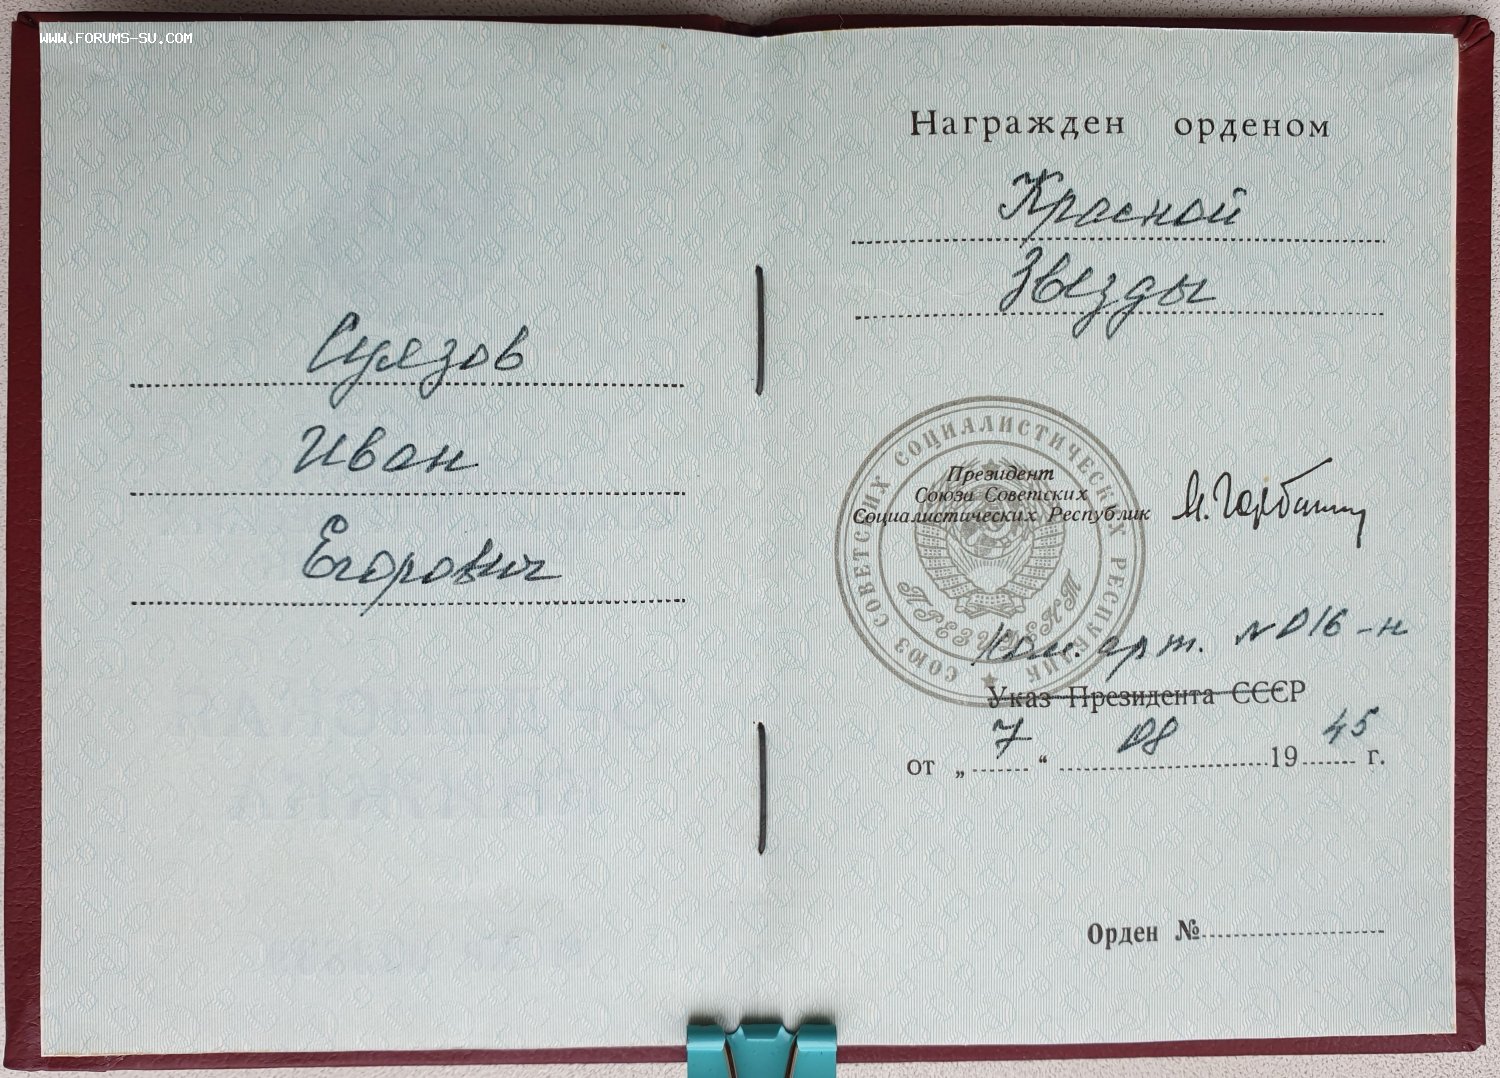 WWW.FORUMS-SU.COM
Суязов
Иван
Егорович
Награжден орденом
Красной
Звезды
СОЮЗ СОВЕТСКИХ СОЦИАЛИСТИЧЕСКИХ РЕСПУБЛИК
ПРЕЗИДЕНТ
Президент
Союза Советских
Социалистических Республик
М. Горбачев
Ком. арт. № 016-н
Указ Президента СССР
от „ 7 “ 08 19 45 г.
Орден №